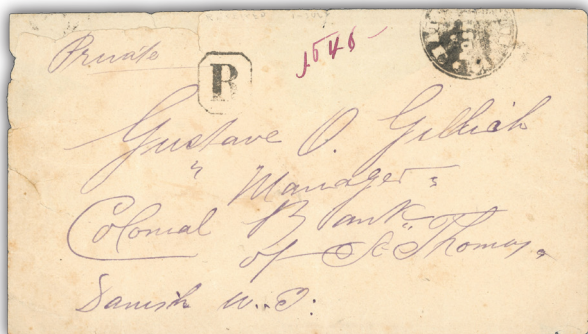 Private
R
1545
Gustave O. Gillich
" Manager "
Colonial Bank
of St. Thomas,
Danish W. I.